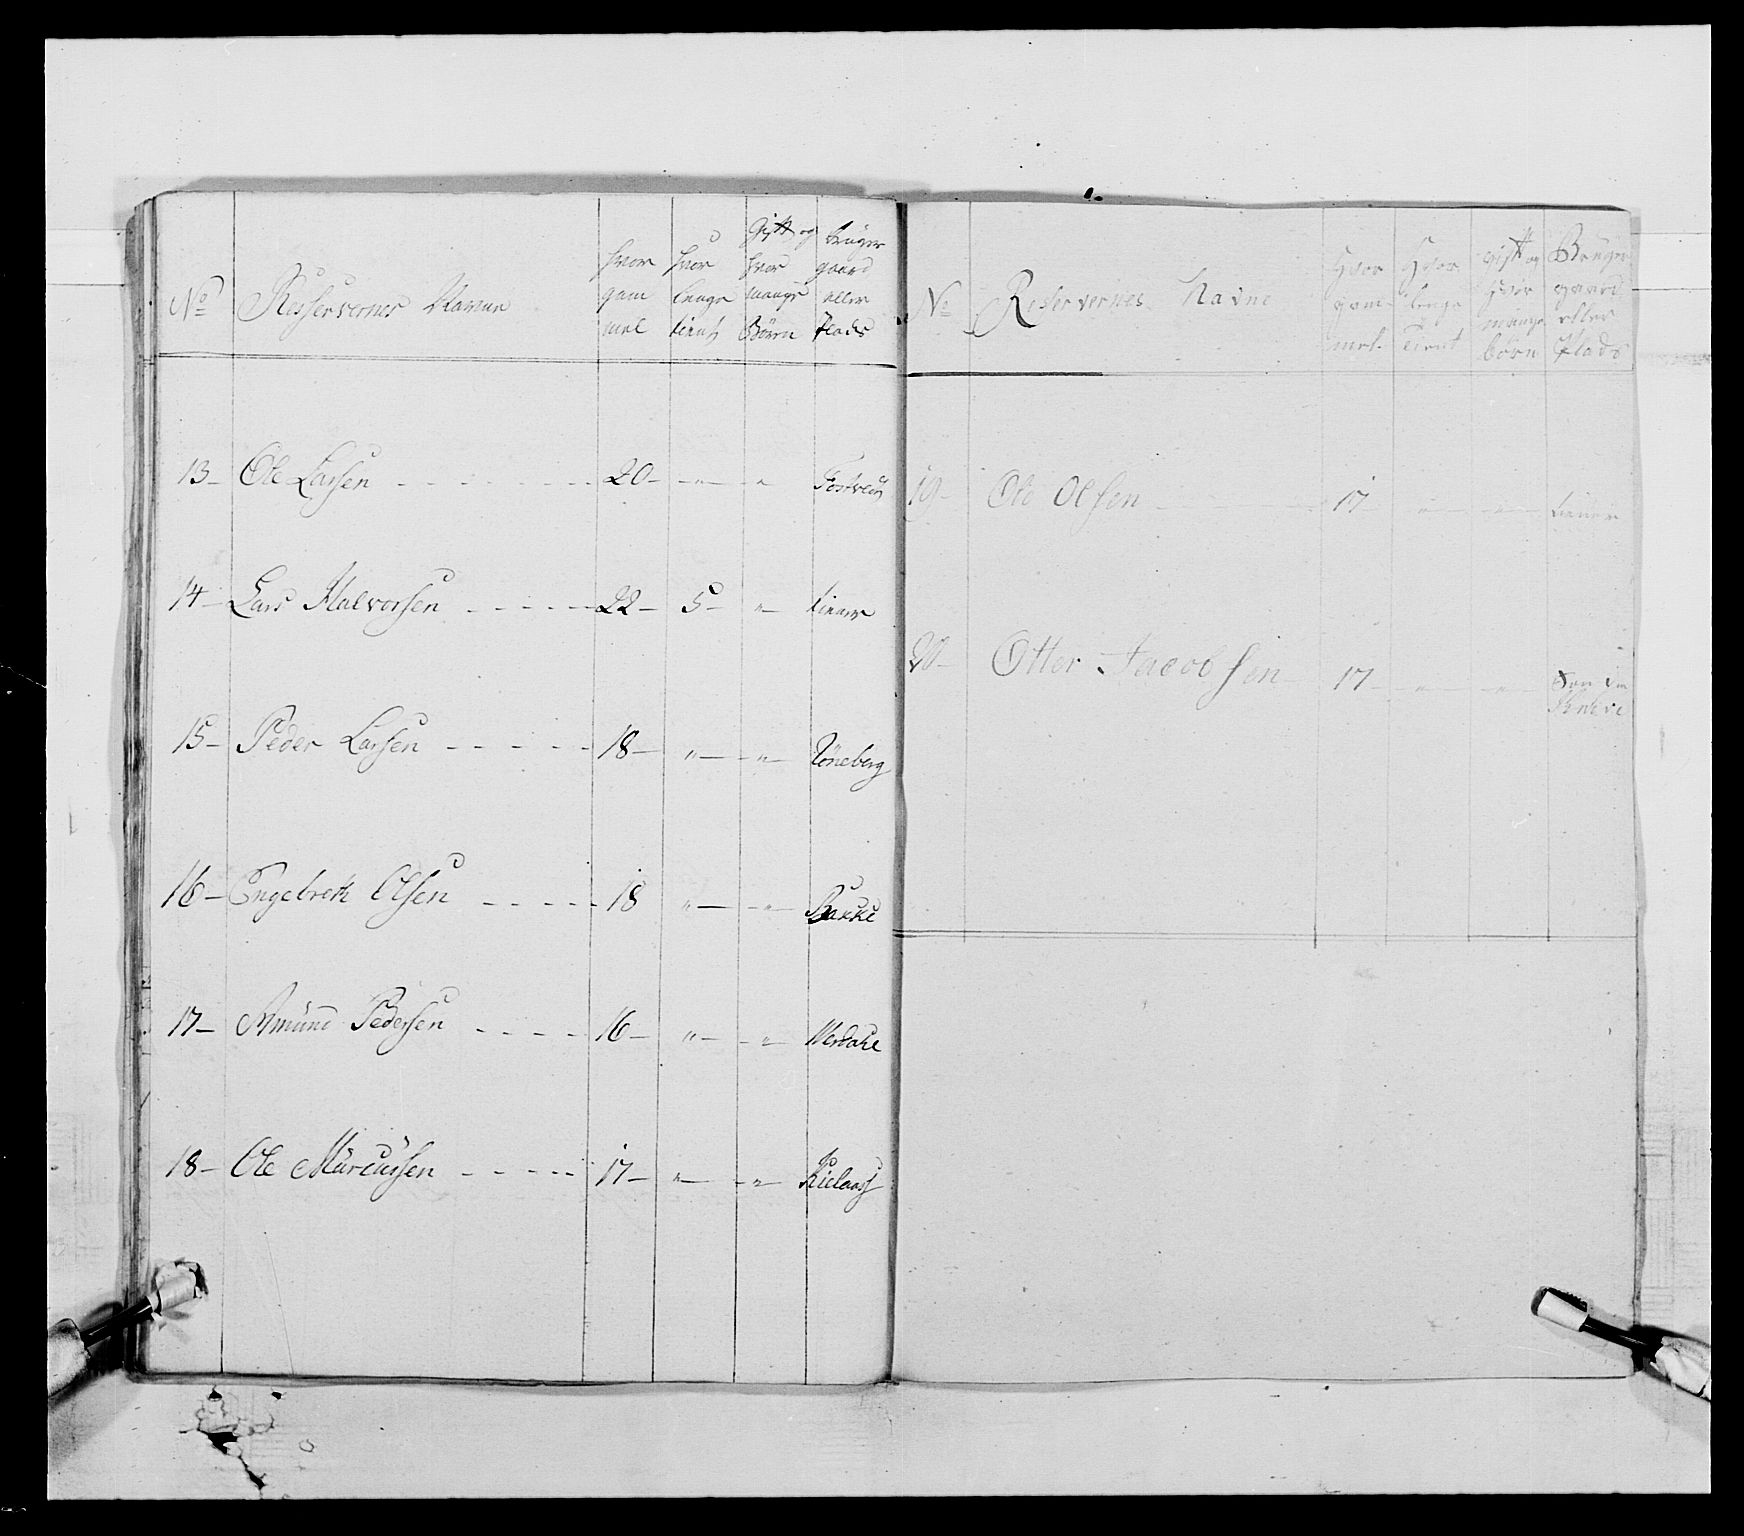 No Resserverner Navne hvor gam mel hvor lenge tient Gift og hvor mange Børn bruger gaard eller Plads
13 - Ole Larsen - - - - - - 20 - - " - " Tostved
14 - Lars Halvorsen - - - - - 22 - 5 - " - tiener
15 - Peder Larsen - - - - - 18 - " - - " - Röneberg
16 - Engebreth Olsen - - - - 18 " - - " - Bakke
17 - Amünd Pedersen - - - - 16 - " - - " - Werdahl
18 - Ole Marcussen - - - - 17 - " - - " -
No Reservernes Navne Hvor gam- mel. Hvor lenge Tient gift og hvor mange børn Bruger gaard eller Plads
19 - Ole Olsen - - - - 17 " - " - tiener
20 - Otter Jacobsen 17 - " - " -